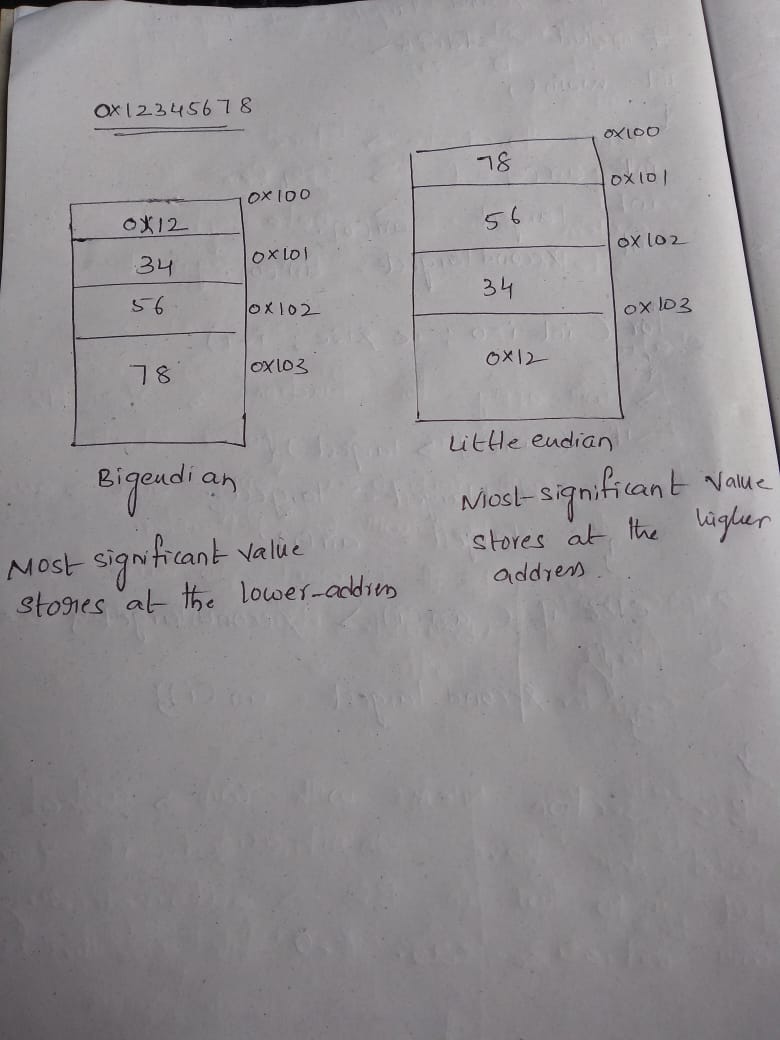 0x12345678
0x100
0x12
34
0x101
56
0x102
78
0x103
Bigendian
Most significant value
stores at the lower-address
0x100
78
0x101
56
0x102
34
0x103
0x12
Little endian
Most-significant value
stores at the higher
address.